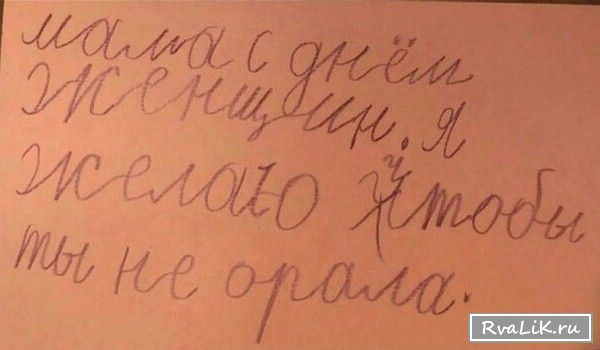 мама с днём
женщин. я
желаю чтобы
ты не орала.
RvaLiK.ru